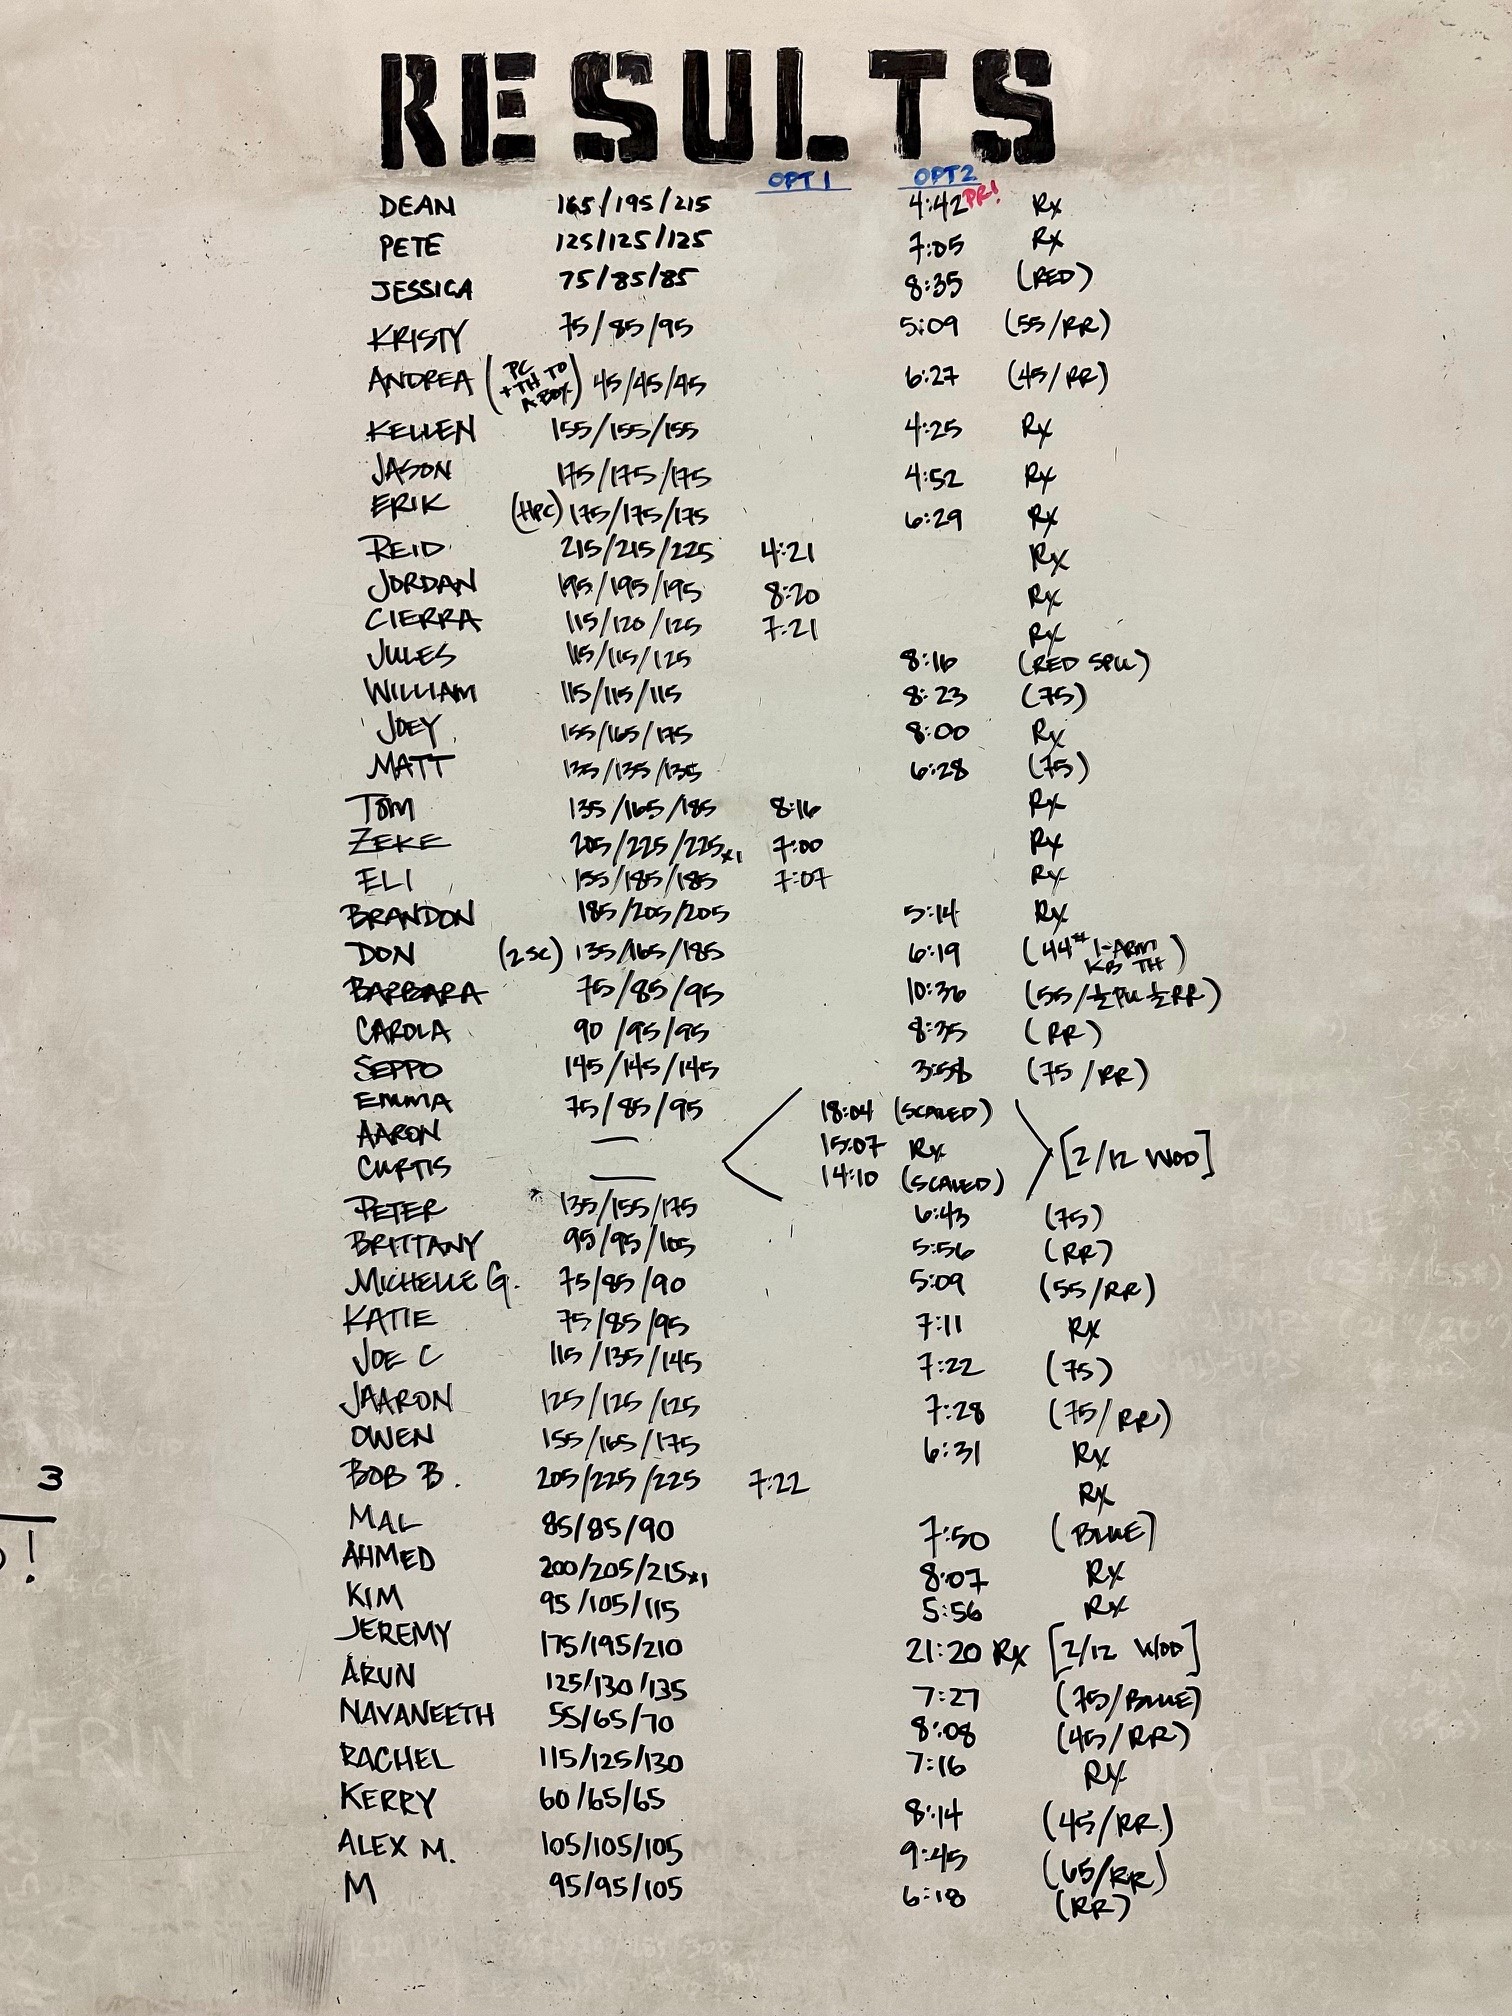 RESULTS
OPT 1 OPT 2
DEAN 165/195/215 4:42 PR! Rx
PETE 125/125/125 7:05 Rx
JESSICA 75/85/85 8:35 (RED)
KRISTY 75/85/95 5:09 (55/RR)
ANDREA (PC + TH TO A BOX) 45/45/45 6:27 (45/RR)
KELLEN 155/155/155 4:25 Rx
JASON 175/175/175 4:52 Rx
ERIK (HPC) 175/175/175 6:29 Rx
REID 215/215/225 4:21 Rx
JORDAN 195/195/195 8:20 Rx
CIERRA 115/120/125 7:21 Rx
JULES 115/115/125 8:16 (RED SPU)
WILLIAM 115/115/115 8:23 (75)
JOEY 155/165/175 8:00 Rx
MATT 135/135/135 6:28 (75)
TOM 135/165/185 8:16 Rx
ZEKE 205/225/225x1 7:00 Rx
ELI 155/185/185 7:07 Rx
BRANDON 185/205/205 5:14 Rx
DON (2SC) 135/165/185 6:19 (44# 1-ARM KB TH)
BARBARA 75/85/95 10:36 (55/½PU ½RR)
CAROLA 90/95/95 8:35 (RR)
SEPPO 145/145/145 3:58 (75/RR)
EMMA 75/85/95 18:04 (SCALED)
AARON — 15:07 Rx [2/12 WOD]
CURTIS — 14:10 (SCALED)
PETER 135/155/175 6:43 (75)
BRITTANY 95/95/105 5:56 (RR)
MICHELLE G. 75/85/90 5:09 (55/RR)
KATIE 75/85/95 7:11 Rx
JOE C 115/135/145 7:22 (75)
JAARON 125/125/125 7:28 (75/RR)
OWEN 155/165/175 6:31 Rx
BOB B. 205/225/225 7:22 Rx
3
MAL 85/85/90 7:50 (BLUE)
!
AHMED 200/205/215x1 8:07 Rx
KIM 95/105/115 5:56 Rx
JEREMY 175/195/210 21:20 Rx [2/12 WOD]
ARUN 125/130/135 7:27 (75/BLUE)
NAVANEETH 55/65/70 8:08 (45/RR)
RACHEL 115/125/130 7:16 RX
KERRY 60/65/65 8:14 (45/RR)
ALEX M. 105/105/105 9:45 (65/RR)
M 95/95/105 6:18 (RR)